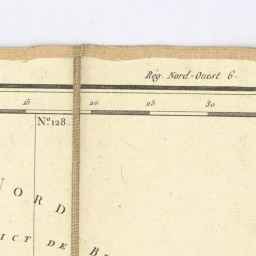 Rég. Nord-Ouest 6.
15 20 25 30
N.º 128.
NORD
ICT DE B